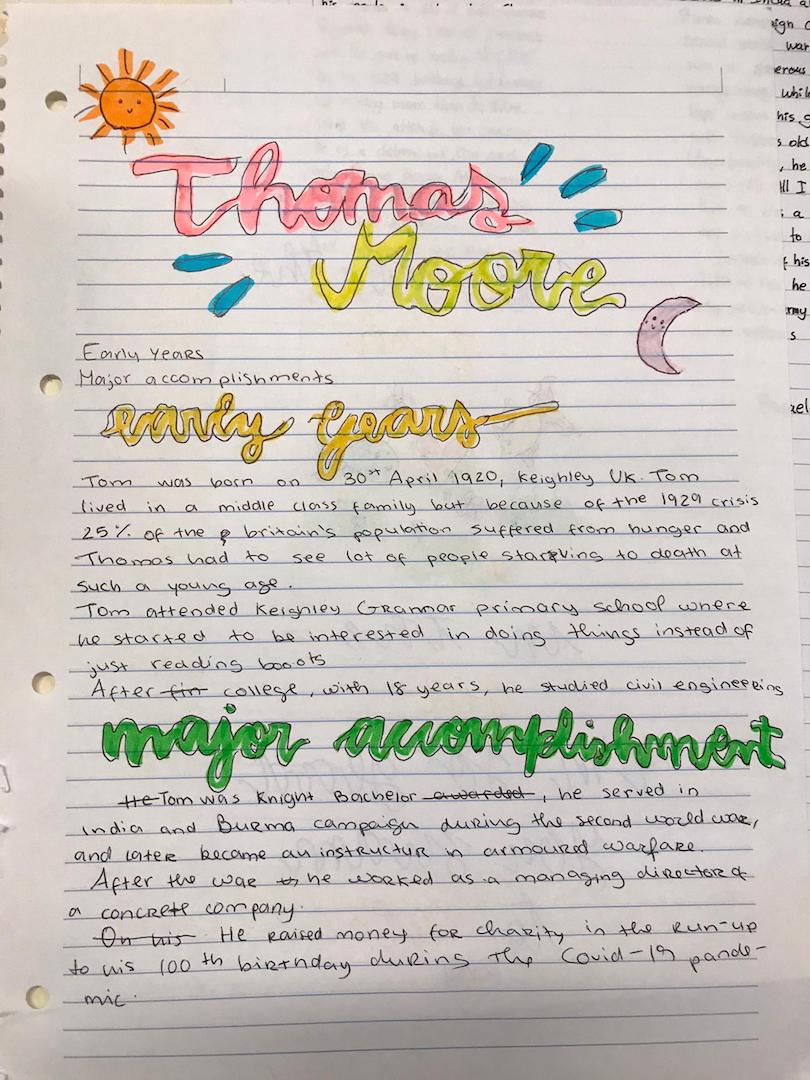 Thomas
Moore
Early Years
Major accomplishments
early years
Tom was born on 30st April 1920, Keighley UK. Tom
lived in a middle class family but because of the 1929 crisis
25% of the britain's population suffered from hunger and
Thomas had to see lot of people starving to death at
such a young age.
Tom attended Keighley Grannar primary school where
he started to be interested in doing things instead of
just reading boooks
After fin college, with 18 years, he studied civil engineering
major accomplishment
He Tom was Knight Bachelor awarded, he served in
India and Burma campaign during the second world war,
and later became an instructur n armoured warfare.
After the war he worked as a managing director of
a concrete company.
On his He raised money for charity in the run-up
to his 100th birthday during the Covid-19 pande-
mic.
ign
war
erous
while
his
s old
, he
ll I
: a
to
his
he
my
s